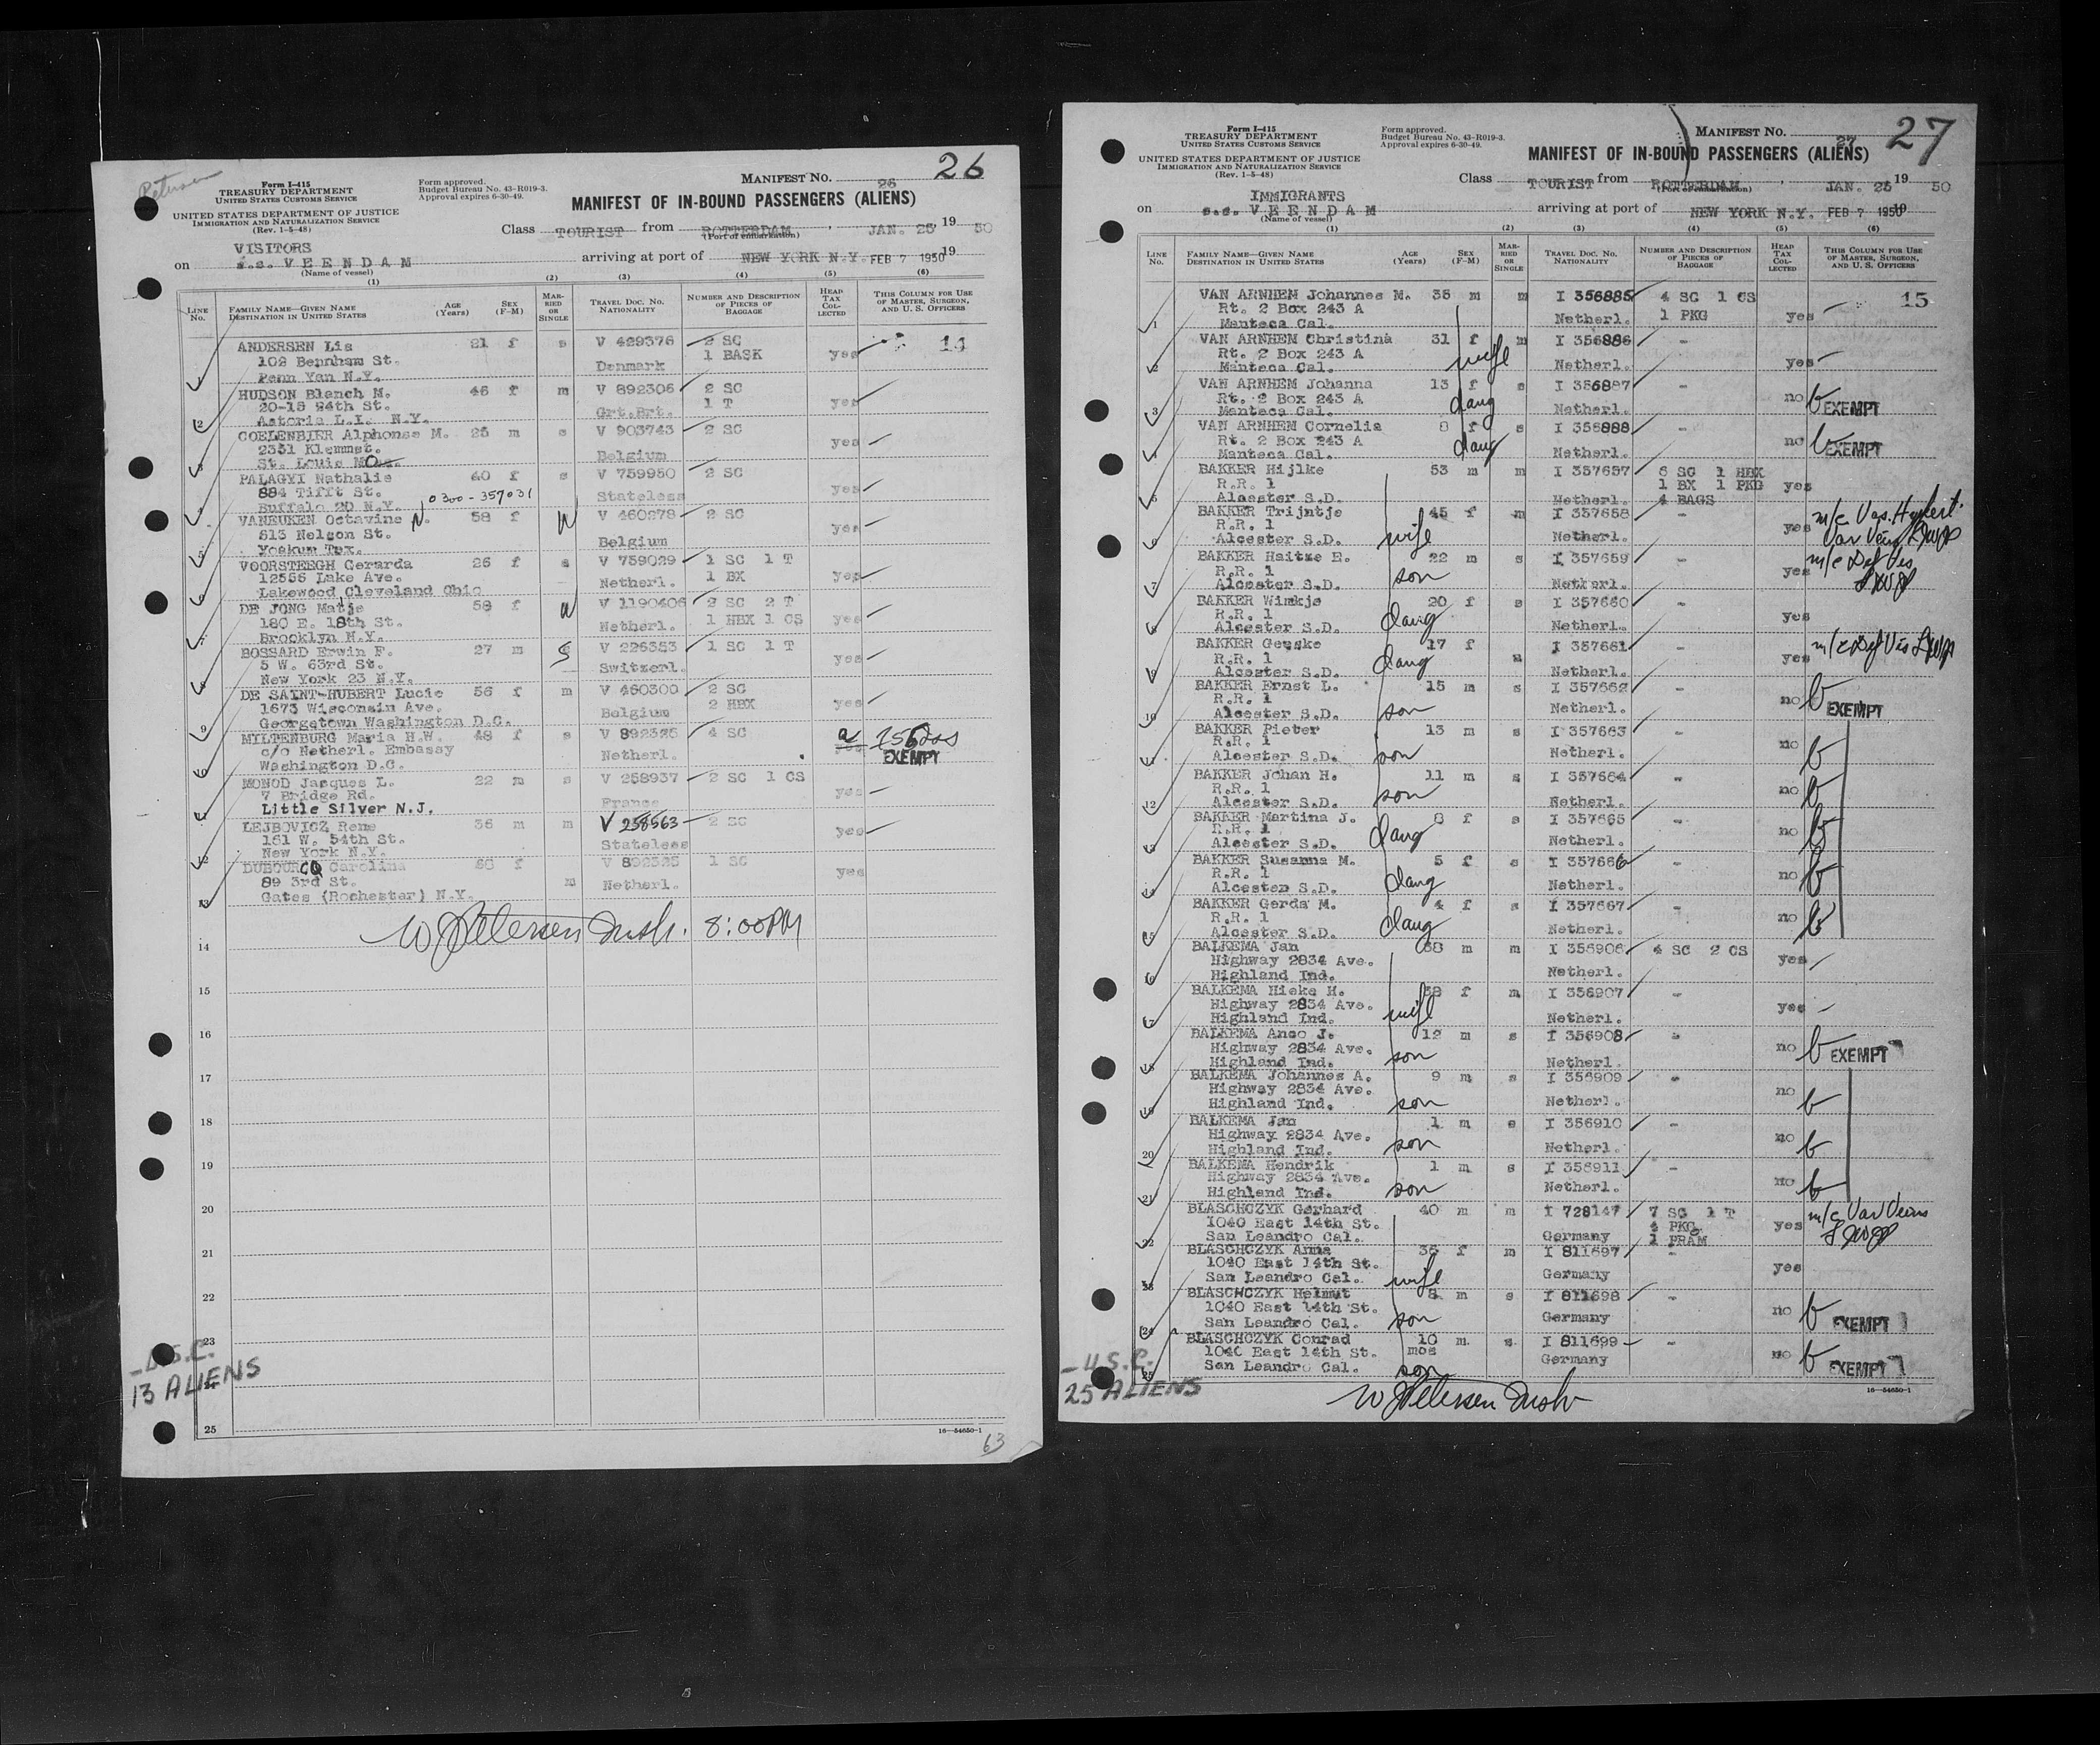 Petersen
26
Form I-415
TREASURY DEPARTMENT
UNITED STATES CUSTOMS SERVICE
UNITED STATES DEPARTMENT OF JUSTICE
IMMIGRATION AND NATURALIZATION SERVICE
(Rev. 1-5-48)
Form approved.
Budget Bureau No. 43-R019-3.
Approval expires 6-30-49.
MANIFEST NO. 26
MANIFEST OF IN-BOUND PASSENGERS (ALIENS)
Class TOURIST from ROTTERDAM, JAN. 25 19 50
(Port of embarkation)
VISITORS
on s.s. VEENDAM arriving at port of NEW YORK N.Y. FEB 7 1950 19
(Name of vessel)
(1) (2) (3) (4) (5) (6)
LINE No. FAMILY NAME—GIVEN NAME DESTINATION IN UNITED STATES AGE (Years) SEX (F-M) MARRIED OR SINGLE TRAVEL DOC. NO. NATIONALITY NUMBER AND DESCRIPTION OF PIECES OF BAGGAGE HEAD TAX COLLECTED THIS COLUMN FOR USE OF MASTER, SURGEON, AND U. S. OFFICERS
ANDERSEN Lis 21 f s V 429376 2 SC 14
102 Bennham St. 1 BASK yes
Penn Yan N.Y. Denmark
HUDSON Blanch M. 46 f m V 892306 2 SC
20-15 24th St. 1 T yes
2 Astoria L.I. N.Y. Grt.Brt.
COELENBIER Alphonse M. 25 m s V 903743 2 SC
2331 Klemnst. yes
St. Louis MO. Belgium
PALAGYI Nathalie 40 f s V 759950 2 SC
884 Tifft St. yes
Buffalo 20 N.Y. 0300-357031 Stateless
VANEUKEN Octavine N. 58 f W V 460278 2 SC
613 Nelson St. yes
5 Yoakum Tex. Belgium
VOORSTEEGH Gerarda 26 f s V 759029 1 SC 1 T
12556 Lake Ave. 1 BX yes
Lakewood Cleveland Ohio Netherl.
DE JONG Matje 58 f W V 1190406 2 SC 2 T
180 E. 18th St. 1 HBX 1 CS yes
Brooklyn N.Y. Netherl.
BOSSARD Erwin F. 27 m S V 226353 1 SC 1 T
5 W. 63rd St. yes
New York 23 N.Y. Switzerl.
DE SAINT-HUBERT Lucie 56 f m V 460300 2 SC
1673 Wisconsin Ave. 2 HBX yes
9 Georgetown Washington D.C. Belgium
MILTENBURG Maria H.W. 48 f s V 892326 4 SC
c/o Netherl. Embassy EXEMPT
Washington D.C. Netherl.
MONOD Jacques L. 22 m s V 258937 2 SC 1 CS
7 Bridge Rd. yes
Little Silver N.J. France
LEJBOVICZ Rene 36 m m V 258563 2 SC
161 W. 54th St. yes
12 New York N.Y. Stateless
DUBOURCQ Carolina f V 892325 1 SC
89 3rd St. m yes
13 Gates (Rochester) N.Y. Netherl.
W J Petersen Insp. 8:00PM
14
15
16
17
18
19
20
21
22
23
24
25
- U.S.C.
13 ALIENS
16—54650-1
63
27
Form I-415
TREASURY DEPARTMENT
UNITED STATES CUSTOMS SERVICE
UNITED STATES DEPARTMENT OF JUSTICE
IMMIGRATION AND NATURALIZATION SERVICE
(Rev. 1-5-48)
Form approved.
Budget Bureau No. 43-R019-3.
Approval expires 6-30-49.
MANIFEST NO. 27
MANIFEST OF IN-BOUND PASSENGERS (ALIENS)
Class TOURIST from ROTTERDAM, JAN. 25 19 50
(Port of embarkation)
IMMIGRANTS
on s.s. VEENDAM arriving at port of NEW YORK N.Y. FEB 7 1950 19
(Name of vessel)
(1) (2) (3) (4) (5) (6)
LINE No. FAMILY NAME—GIVEN NAME DESTINATION IN UNITED STATES AGE (Years) SEX (F-M) MARRIED OR SINGLE TRAVEL DOC. NO. NATIONALITY NUMBER AND DESCRIPTION OF PIECES OF BAGGAGE HEAD TAX COLLECTED THIS COLUMN FOR USE OF MASTER, SURGEON, AND U. S. OFFICERS
VAN ARNHEM Johannes M. 35 m m I 356885 4 SC 1 CS 15
Rt. 2 Box 243 A 1 PKG yes
1 Manteca Cal. Netherl.
VAN ARNHEM Christina 31 f m I 356886 -
Rt. 2 Box 243 A wife yes
2 Manteca Cal. Netherl.
VAN ARNHEM Johanna 13 f s I 356887 -
Rt. 2 Box 243 A daug no b EXEMPT
3 Manteca Cal. Netherl.
VAN ARNHEM Cornelia 8 f s I 356888 -
Rt. 2 Box 243 A daug no b EXEMPT
4 Manteca Cal. Netherl.
BAKKER Hijlke 53 m m I 357657 6 SC 1 HBX
R.R. 1 1 BX 1 PKG yes
5 Alcester S.D. Netherl. 4 BAGS
BAKKER Trijntje 45 f m I 357658 -
R.R. 1 wife yes m/c Vas. Hypert. Var Veins
6 Alcester S.D. Netherl.
BAKKER Haitze E. 22 m s I 357659 -
R.R. 1 son yes m/c Def Vis
7 Alcester S.D. Netherl.
BAKKER Wimkje 20 f s I 357660 -
R.R. 1 daug yes
8 Alcester S.D. Netherl.
BAKKER Geeske 17 f s I 357661
R.R. 1 daug yes m/c Def Vis
9 Alcester S.D. Netherl.
BAKKER Ernst L. 15 m s I 357662 -
R.R. 1 son no b EXEMPT
10 Alcester S.D. Netherl.
BAKKER Pieter 13 m s I 357663
R.R. 1 son no b
11 Alcester S.D. Netherl.
BAKKER Johan H. 11 m s I 357664 -
R.R. 1 son no b
12 Alcester S.D. Netherl.
BAKKER Martina J. 8 f s I 357665 -
R.R. 1 daug no b
13 Alcester S.D. Netherl.
BAKKER Susanna M. 5 f s I 357666 -
R.R. 1 daug no b
14 Alcester S.D. Netherl.
BAKKER Gerda M. 4 f s I 357667 -
R.R. 1 daug no b
15 Alcester S.D. Netherl.
BALKEMA Jan 38 m m I 356906 4 SC 2 CS
Highway 2834 Ave. yes
16 Highland Ind. Netherl.
BALKEMA Hieke H. 38 f m I 356907 -
Highway 2834 Ave. wife yes
17 Highland Ind. Netherl.
BALKEMA Anco J. 12 m s I 356908 -
Highway 2834 Ave. son no b EXEMPT
18 Highland Ind. Netherl.
BALKEMA Johannes A. 9 m s I 356909 -
Highway 2834 Ave. son no b
19 Highland Ind. Netherl.
BALKEMA Jan 1 m s I 356910 -
Highway 2834 Ave. son no b
20 Highland Ind. Netherl.
BALKEMA Hendrik 1 m s I 356911 -
Highway 2834 Ave. son no b
21 Highland Ind. Netherl.
BLASCHCZYK Gerhard 40 m m I 728147 7 SC 1 T
1040 East 14th St. 4 PKG yes m/c Var Veins
22 San Leandro Cal. Germany 1 PRAM
BLASCHCZYK Anna 36 f m I 811697 -
1040 East 14th St. wife yes
23 San Leandro Cal. Germany
BLASCHCZYK Helmut 8 m s I 811698 -
1040 East 14th St. son no b EXEMPT
24 San Leandro Cal. Germany
BLASCHCZYK Conrad 10 mos m s I 811699 -
1040 East 14th St. son no b EXEMPT
25 San Leandro Cal. Germany
- U.S.C.
25 ALIENS
W J Petersen Insp
16—54650-1